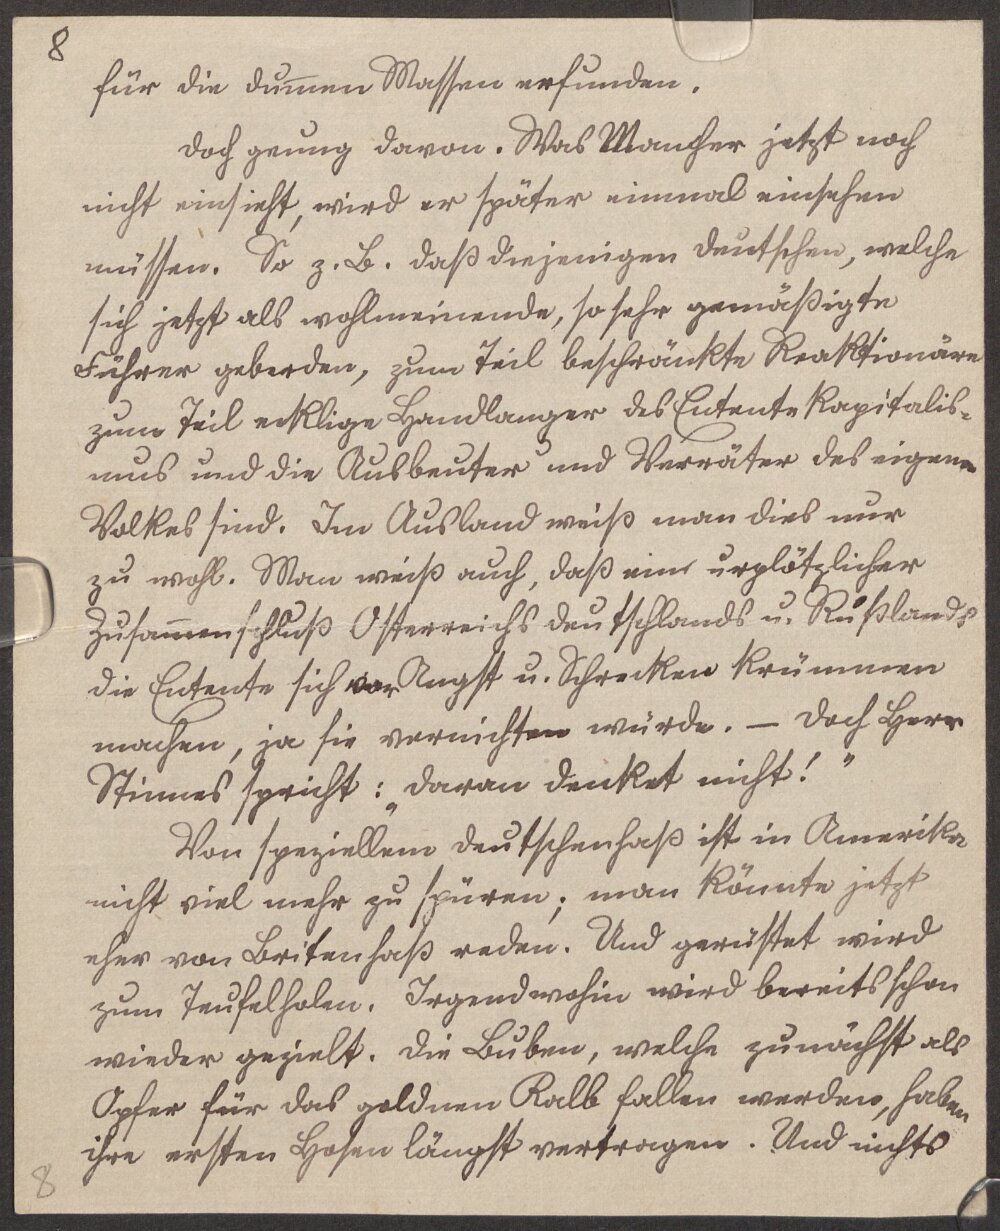 8
für die dum̅en Massen erfunden.
Doch genug davon. Was Mancher jetzt noch
nicht einsieht, wird er später einmal einsehen
müssen. So z. B. daß diejenigen Deutschen, welche
sich jetzt als wohlmeinende, so sehr gemäßigte
Führer geberden, zum Teil beschränkte Reaktionäre
zum Teil ecklige Handlanger des Entente Kapitalis-
mus und die Ausbeuter und Verräter des eigenen
Volkes sind. Im Ausland weiß man dies nur
zu wohl. Man weiß auch, daß ein urplötzlicher
Zusam̅enschluß Österreichs Deutschlands u. Rußlands
die Entente sich vor Angst u. Schrecken krümmen
machen, ja sie vernichten würde. — Doch Herr
Stinnes spricht: „Daran denket nicht!"
Von speziellem Deutschenhaß ist in Amerika
nicht viel mehr zu spüren; man könnte jetzt
eher von Britenhaß reden. Und gerüstet wird
zum Teufelholen. Irgendwohin wird bereits schon
wieder gezielt. Die Buben, welche zunächst als
Opfer für das goldnen Kalb fallen werden, haben
ihre ersten Hosen längst vertragen. Und nichts
8